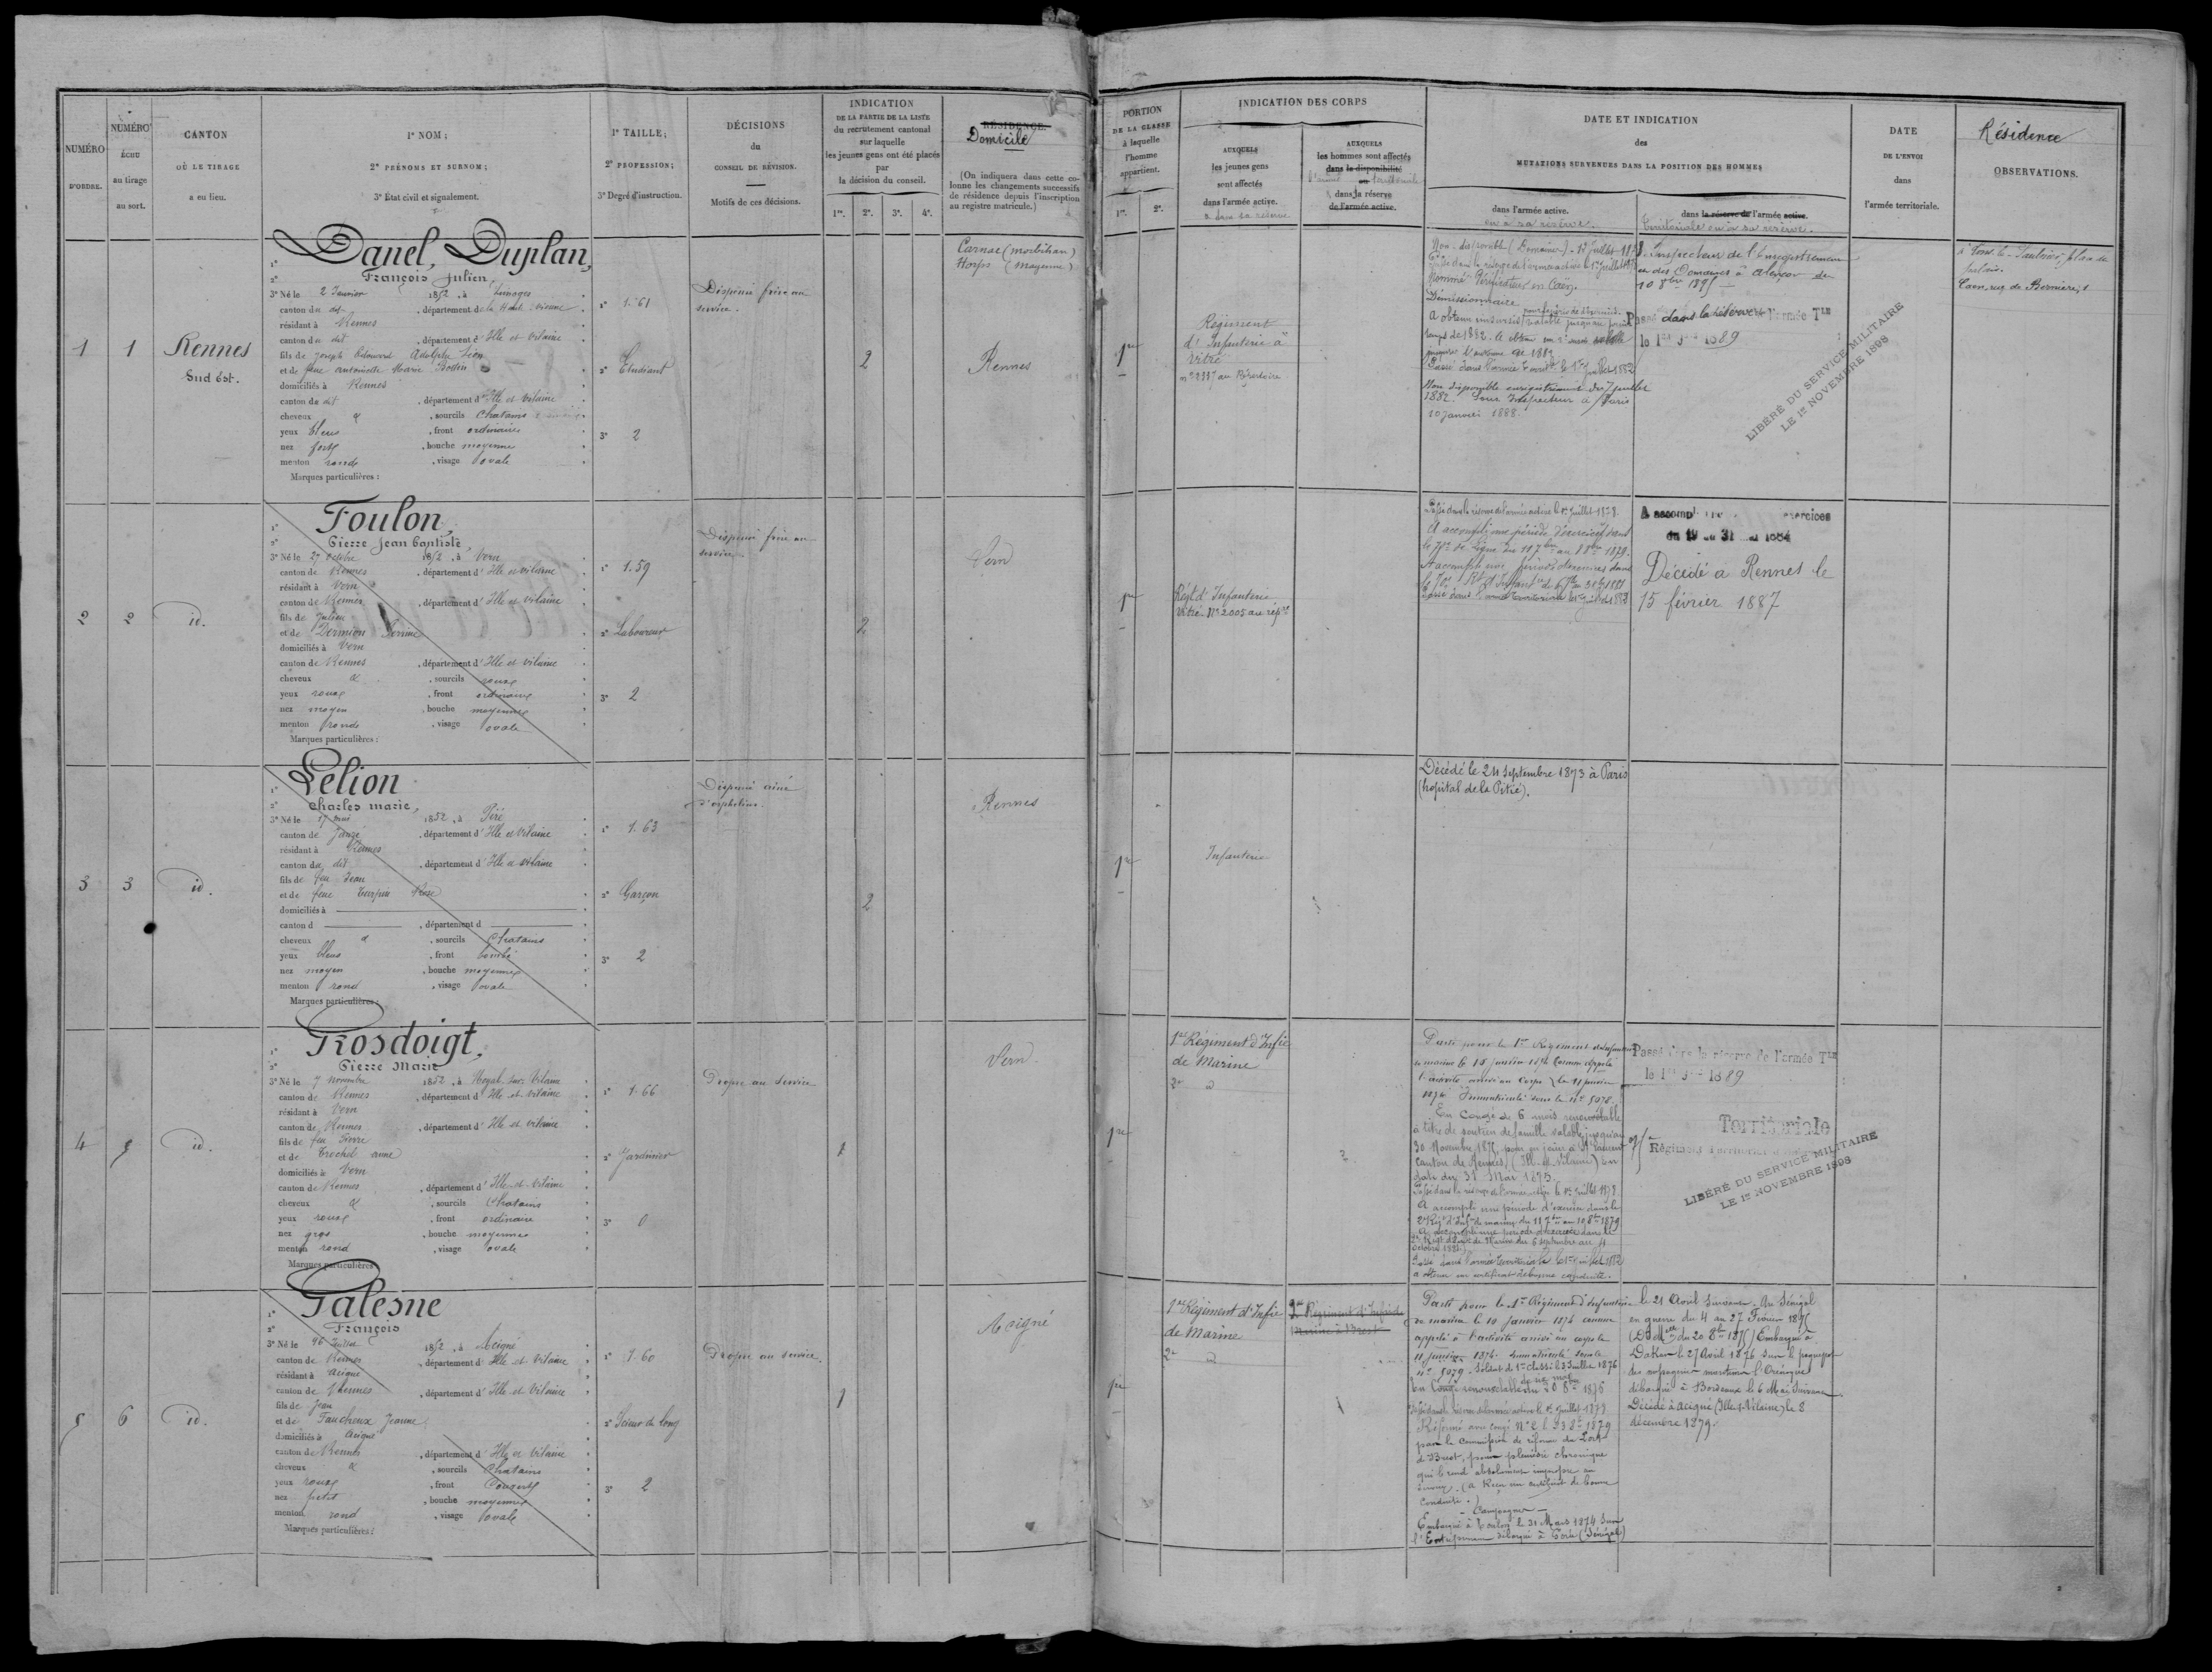 NUMÉRO
D'ORDRE.
NUMÉRO
ÉCHU
au tirage
au sort.
CANTON
OÙ LE TIRAGE
a eu lieu.
1º NOM;
2º PRÉNOMS ET SURNOM;
3º État civil et signalement.
1º TAILLE;
2º PROFESSION;
3º Degré d'instruction.
DÉCISIONS
du
CONSEIL DE RÉVISION.
Motifs de ces décisions.
INDICATION
DE LA PARTIE DE LA LISTE
du recrutement cantonal
sur laquelle
les jeunes gens ont été placés
par
la décision du conseil.
1re. 2e. 3e. 4e.
RÉSIDENCE.
Domicile
(On indiquera dans cette co-
lonne les changements successifs
de résidence depuis l'inscription
au registre matricule.)
PORTION
DE LA CLASSE
à laquelle
l'homme
appartient.
1re. 2e.
INDICATION DES CORPS
AUXQUELS
les jeunes gens
sont affectés
dans l'armée active.
AUXQUELS
les hommes sont affectés
dans la disponibilité
ou
dans la réserve
de l'armée active.
DATE ET INDICATION
des
MUTATIONS SURVENUES DANS LA POSITION DES HOMMES
dans l'armée active.
ou sa réserve.
dans la réserve de l'armée active.
Territoriale ou sa réserve.
DATE
DE L'ENVOI
dans
l'armée territoriale.
Résidence
OBSERVATIONS.
1
1
Rennes
Sud Est.
Danel, Duplan,
François Julien,
3º Né le 2 Janvier 1852, à Limoges
canton du dit, département de la Haute Vienne
résidant à Rennes
canton du dit, département d'Ille et Vilaine
fils de Joseph Edouard Adolphe Léon
et de feue Antoinette Marie
domiciliés à Rennes
canton du dit, département d'Ille et Vilaine
cheveux et, sourcils Chatains
yeux bleus, front ordinaire
nez fort, bouche moyenne
menton rond, visage ovale
Marques particulières :
1º 1.61
2º Etudiant
3º 2
Dispensé frère au
service.
2
Carnac (Morbihan)
Horps (Mayenne)
Rennes
1re
Régiment
d'Infanterie à
Vitré
Non-disponible (Domaines) - 12 Juillet 187
Passé dans la réserve de l'armée active le 1er Juillet 187
Nommé Vérificateur en Caen.
Démissionnaire
Passé dans l'armée territle le 1er Juillet 1882
Non disponible enregistrement du 7 juillet
1882. Sous Inspecteur à Paris
10 janvier 1888.
Inspecteur de l'Enregistrement
et des Domaines à Alençon
10 8bre 1895
Passé dans la réserve de l'armée Tle
le 1er 1889
LIBÉRÉ DU SERVICE MILITAIRE
LE 1er NOVEMBRE 1898
palais.
Caen, rue de Bernières, 1
2
2
id.
Foulon,
Pierre Jean Baptiste,
3º Né le 27 octobre 1852, à Vern
canton de Rennes, département d'Ille et vilaine
résidant à Vern
canton de Rennes, département d'Ille et vilaine
fils de Julien
et de Dermion Perrine
domiciliés à Vern
canton de Rennes, département d'Ille et vilaine
cheveux et, sourcils roux
yeux roux, front ordinaire
nez moyen, bouche moyenne
menton rond, visage ovale
Marques particulières :
1º 1.59
2º Laboureur
3º 2
Dispensé frère au
service.
2
Vern
1re
Régt d'Infanterie
Vitré Nº 2005 au répre
Passé dans la réserve de l'armée active le 1er Juillet 1878.
A accompli une période d'exercices dans
le 70e de ligne du 11 7bre au 8 8bre 1879.
A accompli une période d'exercices dans
Passé dans l'armée territoriale le 1er juillet 1882
A accompli exercices
du 19 au 31 1884
Décédé à Rennes le
15 février 1887
3
3
id.
Lelion
Charles Marie,
3º Né le 17 mai 1852, à Piré
canton de Janzé, département d'Ille et Vilaine
résidant à Rennes
canton du dit, département d'Ille et vilaine
fils de feu Jean
et de feue Turpin Rose
domiciliés à
canton d , département d
cheveux et, sourcils Chatains
yeux bleus, front bombé
nez moyen, bouche moyenne
menton rond, visage ovale
Marques particulières :
1º 1.63
2º Garçon
3º 2
Dispensé aîné
d'orphelins.
2
Rennes
1re
Infanterie
Décédé le 24 Septembre 1873 à Paris
(hopital de la Pitié).
4
5
id.
Rosdoigt,
Pierre Marie
3º Né le 7 novembre 1852, à Noyal sur Vilaine
canton de Rennes, département d'Ille et Vilaine
résidant à Vern
canton de Rennes, département d'Ille et vilaine
fils de feu Pierre
et de Trochel Anne
domiciliés à Vern
canton de Rennes, département d'Ille-et-Vilaine
cheveux et, sourcils Chatains
yeux roux, front ordinaire
nez gros, bouche moyenne
menton rond, visage ovale
Marques particulières
1º 1.66
2º Jardinier
3º 0
Propre au service
1
Vern
1re
1er Régiment d'Infie
de Marine
2e id
Parti pour le 1er Régiment d'Infanterie
de marine le 15 janvier 1874 comme appelé
à l'activité arrivé au Corps le 11 janvier
1874 Immatriculé sous le nº 5078.
En Congé de 6 mois renouvelable
à titre de soutien de famille valable jusqu'au
30 Novembre 1875
canton de Rennes (Ille-et-Vilaine) en
date du 31 Mai 1875.
Passé dans la réserve de l'armée active le 1er Juillet 1878
A accompli une période d'exercice dans le
2e Régt d'Inf. de marine du 11 7bre au 10 8bre 1879
A accompli une période d'exercice dans le
2e Régt d'Inf. de Marine du 6 septembre au 4
octobre 1881
Passé dans l'armée territoriale le 1er juillet 1882
a obtenu un certificat de bonne conduite.
Passé dans la réserve de l'armée Tle
le 1er 1889
Territoriale
Régiment Territorial
LIBÉRÉ DU SERVICE MILITAIRE
LE 1er NOVEMBRE 1898
5
6
id.
Palesne
François
3º Né le 26 Juillet 1852, à Acigné
canton de Rennes, département d'Ille et Vilaine
résidant à Acigné
canton de Rennes, département d'Ille et Vilaine
fils de Jean
et de Faucheux Jeanne
domiciliés à Acigné
canton de Rennes, département d'Ille et Vilaine
cheveux et, sourcils Chatains
yeux roux, front Couvert
nez petit, bouche moyenne
menton rond, visage ovale
Marques particulières :
1º 1.60
2º Scieur de long
3º 2
Propre au service.
1
Acigné
1re
1er Régiment d'Infie
de Marine
2e id
2e Régiment d'Infie de
Marine à Brest
Parti pour le 1er Régiment d'Infanterie
de marine le 10 Janvier 1874 comme
appelé à l'activité arrivé au corps le
11 janvier 1874. Immatriculé sous le
nº 5079. Soldat de 1re classe le 3 Juillet 1876
En Congé renouvelable du 20 8bre 1876
Passé dans la réserve de l'armée active le 1er Juillet 1878
Réformé avec congé Nº 2 le 23 8bre 1879
par la Commission de réforme du Port
de Brest, pour pleurésie chronique
qui le rend absolument impropre au
service. (a Reçu un certificat de bonne
conduite.)
Campagnes
Embarqué à Toulon le 31 Mars 1874 sur
l'Entreprenante débarqué à Gorée (Sénégal)
le 21 Avril suivant. Au Sénégal
en guerre du 4 au 27 Février 1875
(Dd Mlle du 20 8bre 1875) Embarqué à
Dakar le 27 Avril 1876 sur le paquebot
des messageries maritimes l'Orénoque
débarqué à Bordeaux le 6 Mai suivant.
Décédé à Acigné (Ille-et-Vilaine) le 8
décembre 1879.